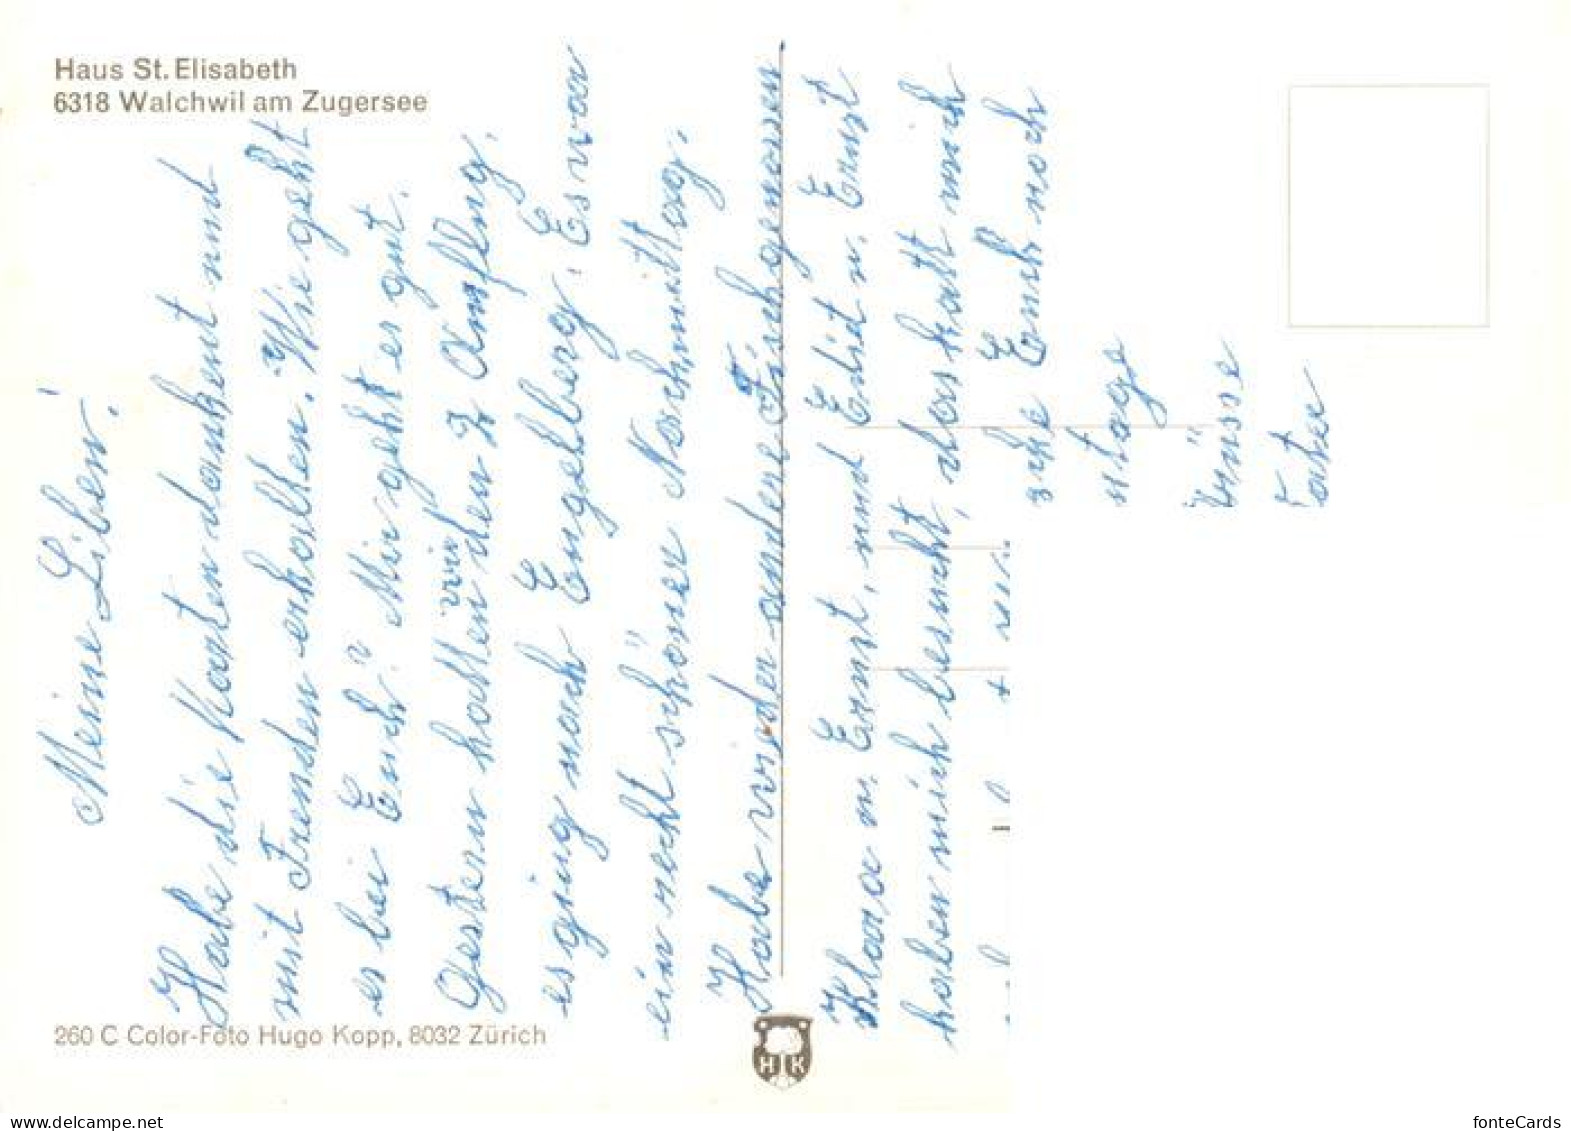 Haus St. Elisabeth
6318 Walchwil am Zugersee
Meine Liben!
Habe die Karten dankent und
mit Freuden erhalten. Wie geht
es bei Euch? Mir geht es gut.
Gestern hatten wir den 2 Ausflug,
es ging nach Engelberg. Es war
ein recht schöner Nachmittag.
Habe wieder andere Tischgenossen
Klara u. Ernst, und Edid u. Ernst
haben mich besucht, das hatt mich
Euch noch
stage
rüsse
ater
260 C Color-Foto Hugo Kopp, 8032 Zürich
H K
www.delcampe.net
fonteCards